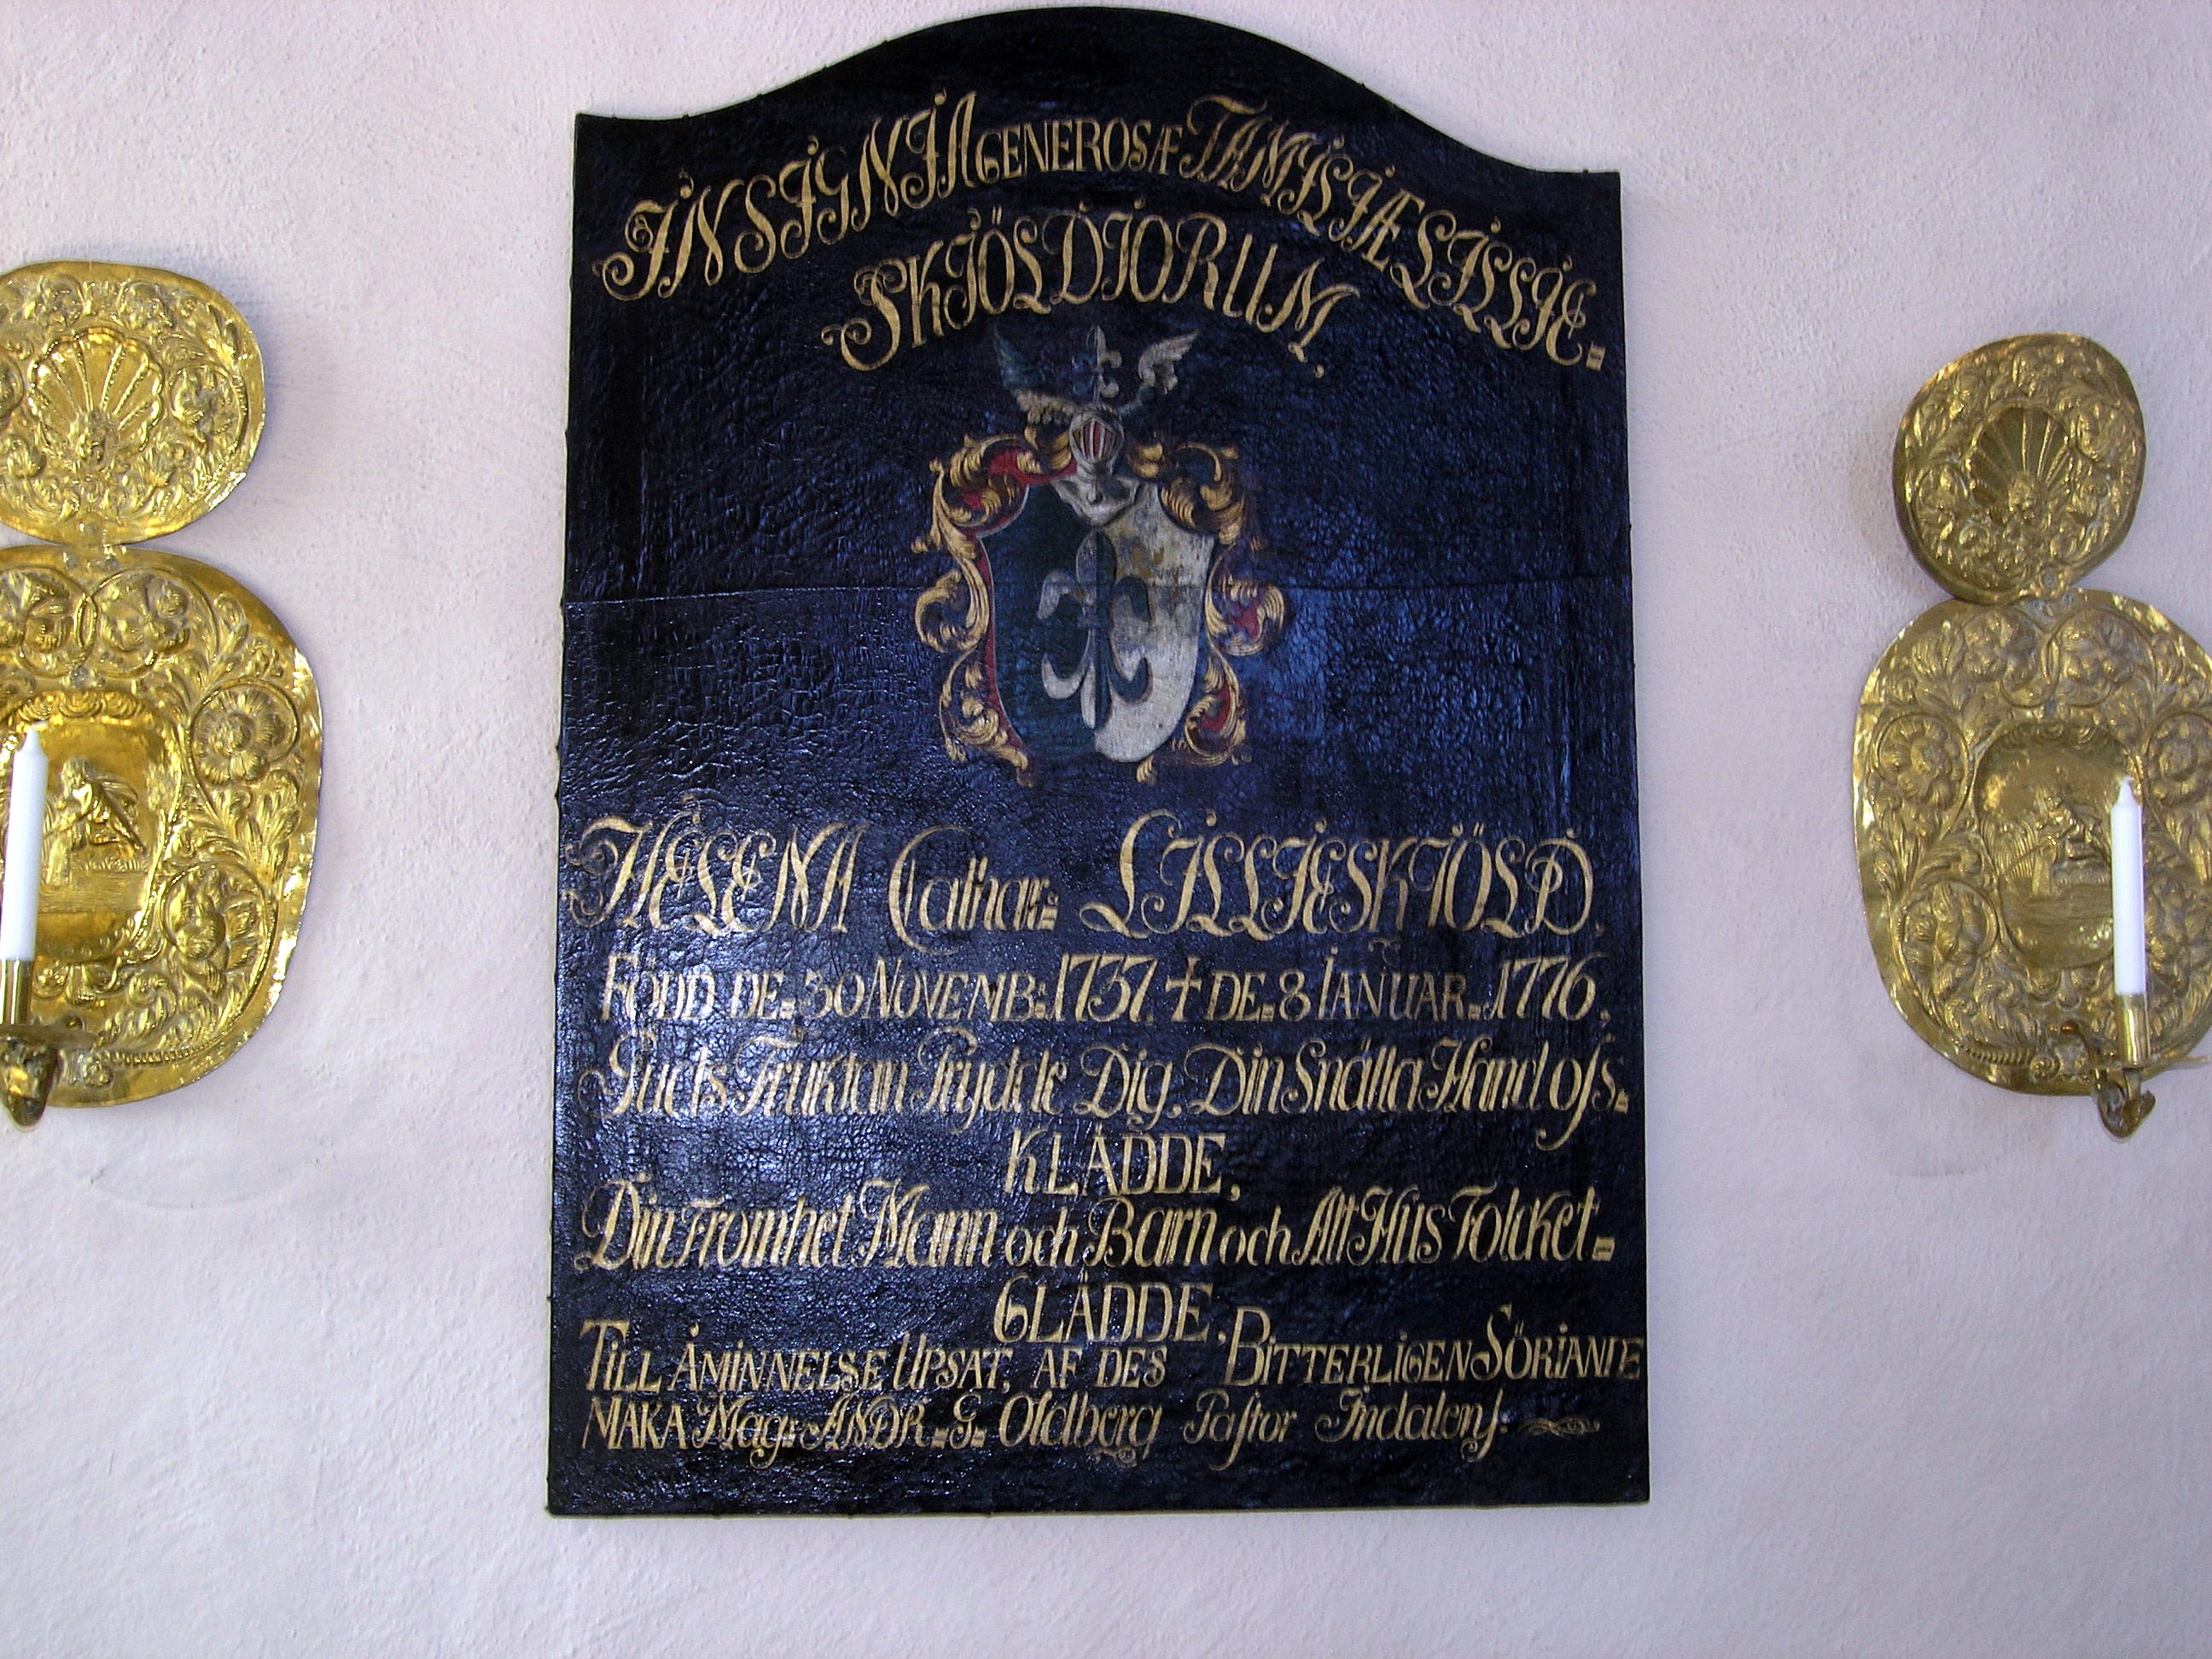 INSIGNIA GENEROSÆ FAMILIÆ LILLIE=
SKIÖLDIORUM,
HELENA Cathar: LILLIESKIÖLD,
FÖDD DE= 30 NOVEMB: 1737. ✝ DE= 8 IANUAR= 1776,
Guds Fruktan Prydde Dig, Din Snälla Hand ofs=
KLÄDDE,
Din Fromhet Mann och Barn och Alt Hus Folcket=
GLÄDDE,
TILL ÅMINNELSE UPSAT, AF DES BITTERLIGEN SÖRIANDE
MAKA Mag: ANDR= G= Oldberg Paſtor Indalens.